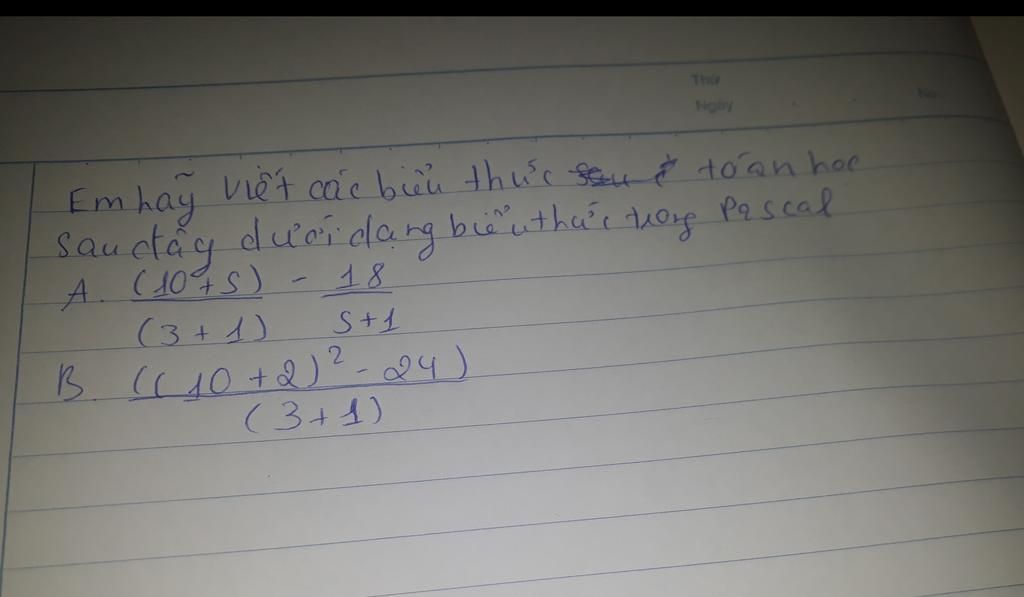 Thứ
Ngày No
Em hãy viết các biểu thức toán học
sau đây dưới dạng biểu thức trong Pascal
A. (10+5) - 18
(3+1) 5+1
B. ((10+2)² - 24)
(3+1)